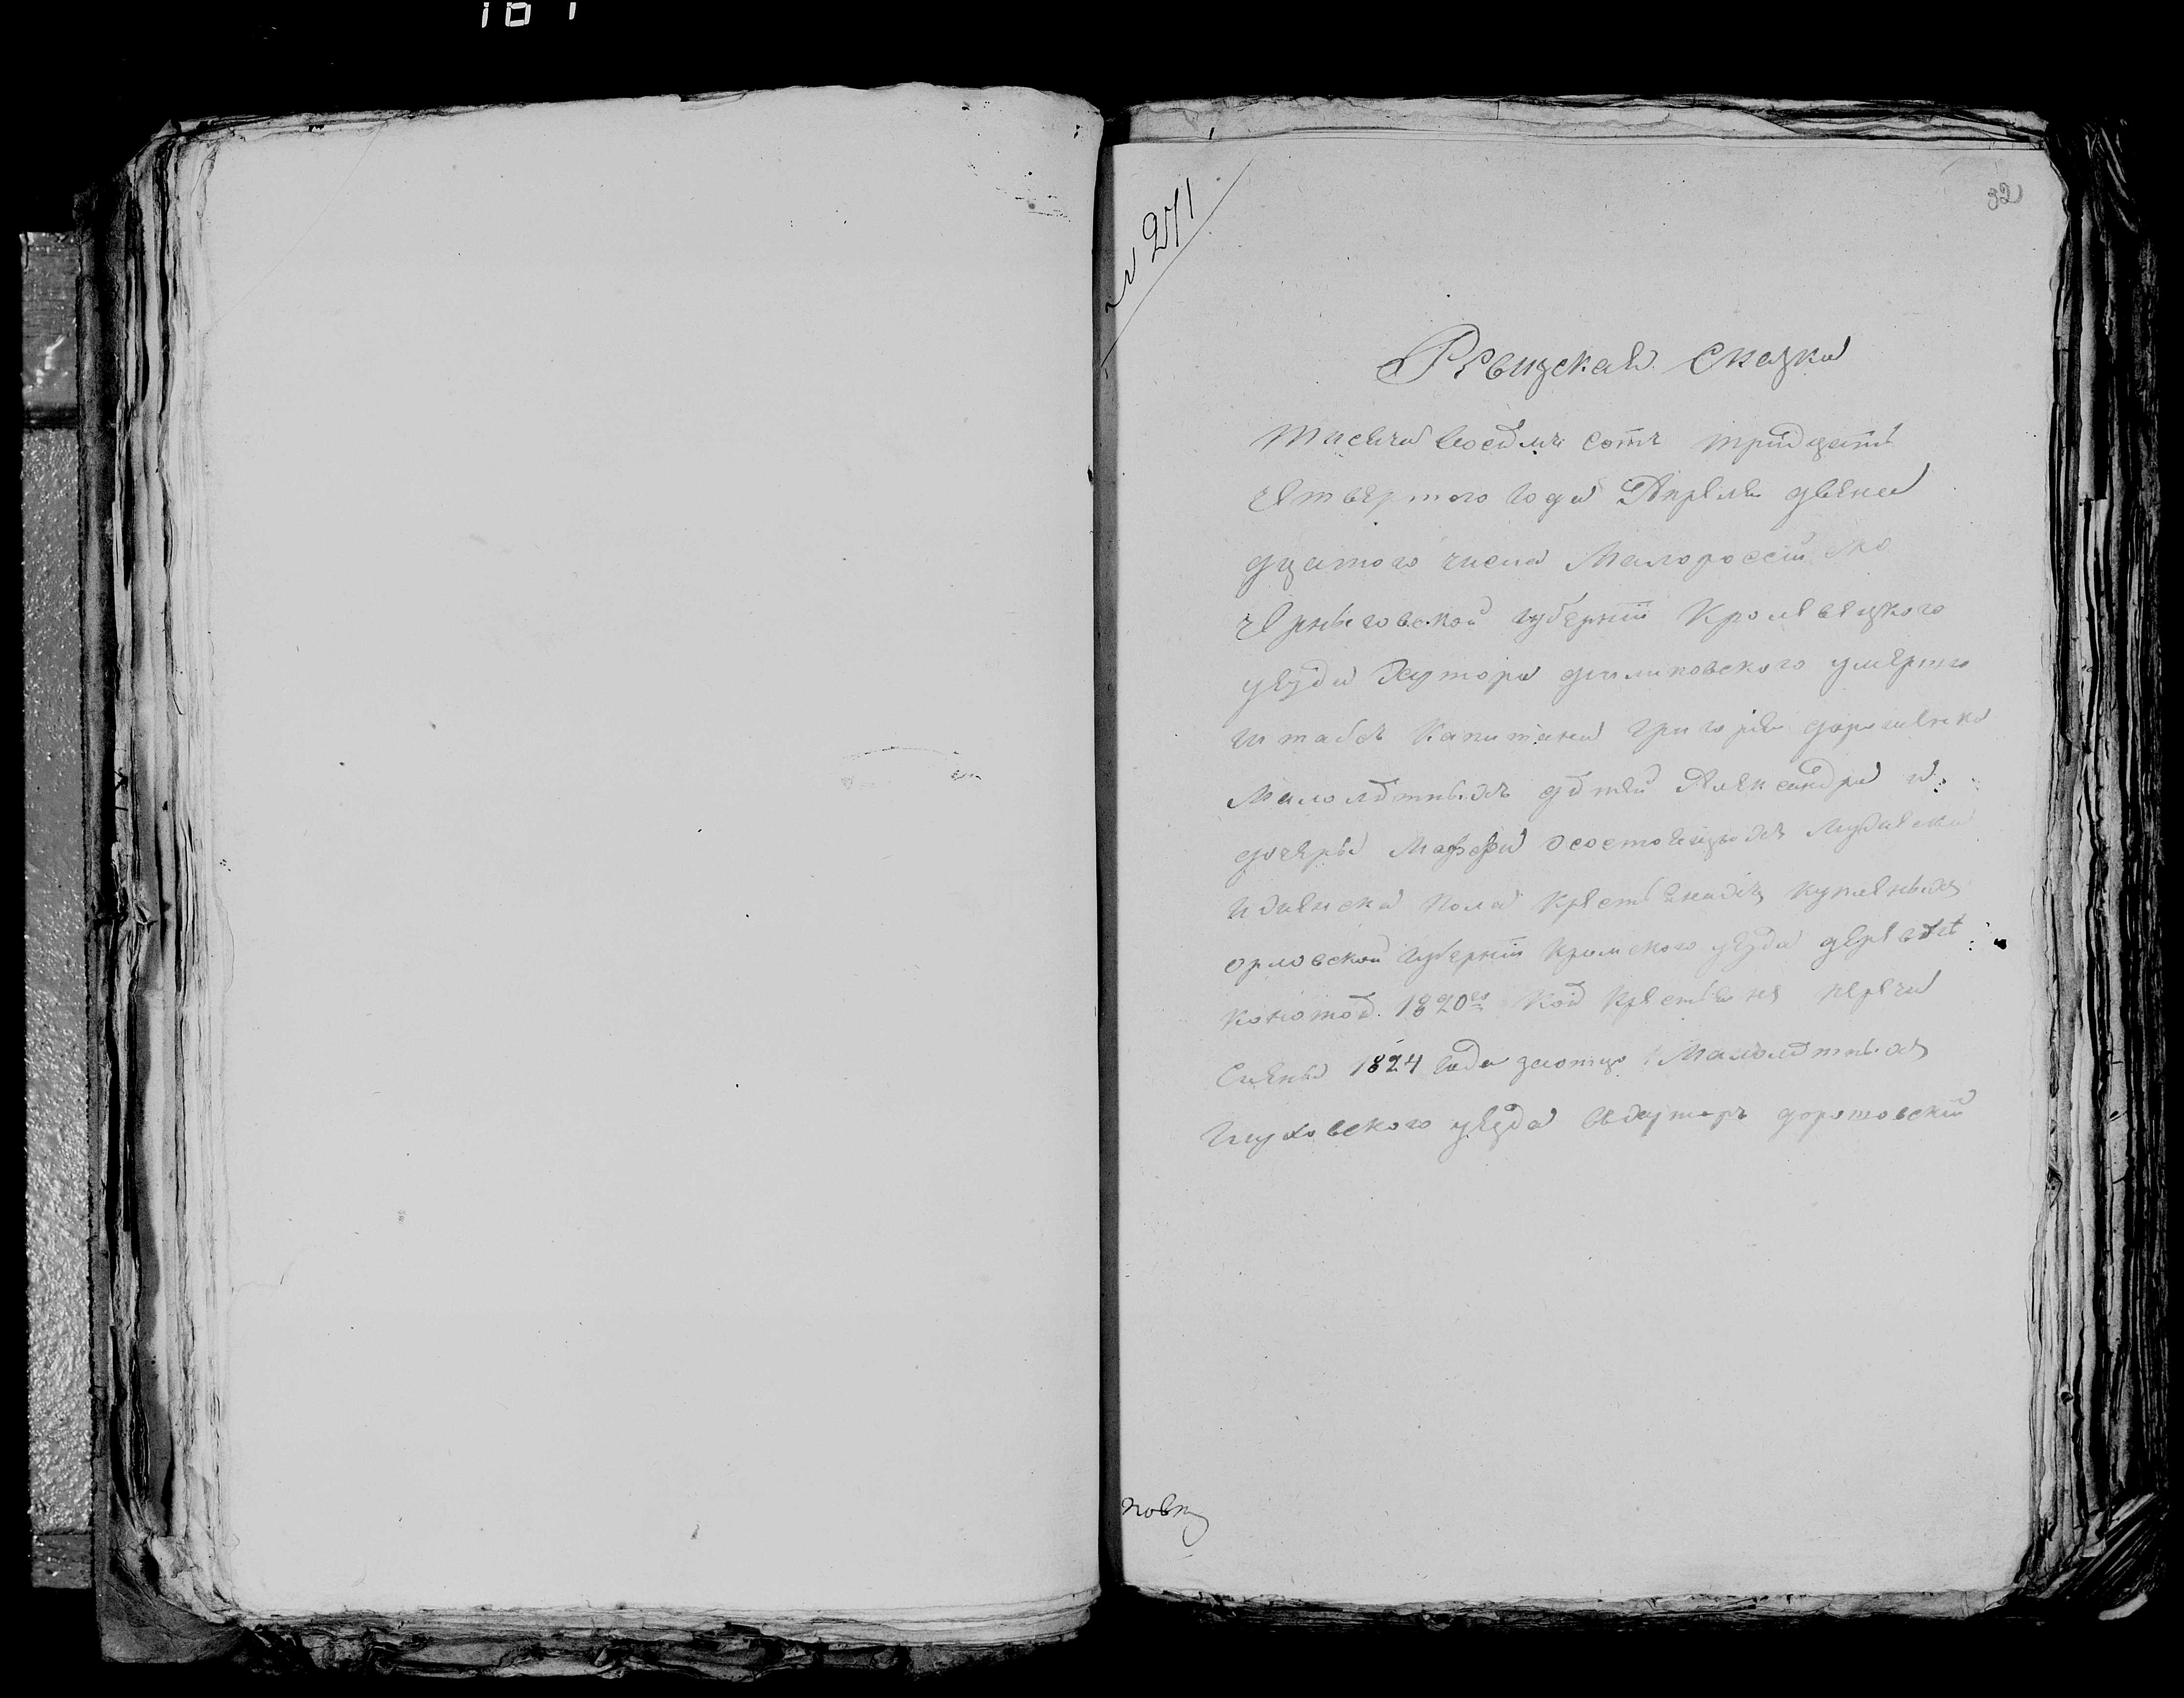 № 271
32
Ревизская Сказка
тисеча восемъ сотъ тридцать
четвертого года Апреля двена
дцатого числа Малороссійско
черниговской губерніи Кролевецкого
уезда Хутора умерто
штабсъ Капитана григорія дорошенка
Малолетныхъ детей Александра и
дочеры осостоящихъ мужеска
иженска пола крестьянахъ купленыхъ
орловской губерніи уезда деревне
1820го крестьяне
1824 года Малолетныхъ
глуховского уезда вхуторъ